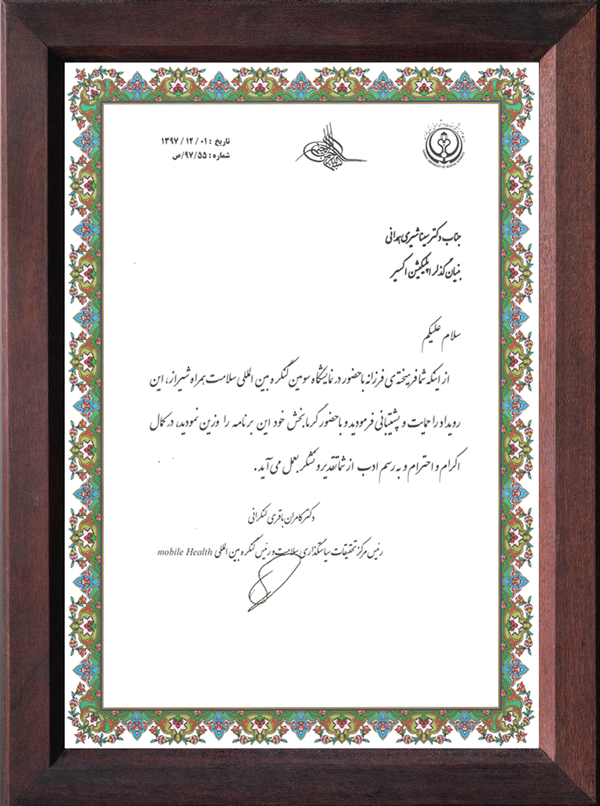 تاریخ : ۰۱ / ۱۲ / ۱۳۹۷
شماره : ۹۷/۵۵/ص
جناب دکتر سینا شیری همدانی
بنیان گذار اپلیکیشن اکسیر
سلام علیکم
از اینکه شما فرهیخته‌ی فرزانه با حضور در نمایشگاه سومین کنگره بین المللی سلامت همراه شیراز، این
رویداد را حمایت و پشتیبانی فرمودید و با حضور گرمابخش خود این برنامه را وزین نمودید، در کمال
اکرام و احترام و به رسم ادب از شما تقدیر و تشکر بعمل می آید.
دکتر کامران باقری لنکرانی
رئیس مرکز تحقیقات سیاستگذاری سلامت و رئیس کنگره بین المللی mobile Health